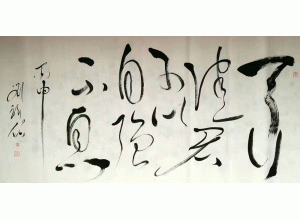 天行
健君
子以
自强
不息
丙申